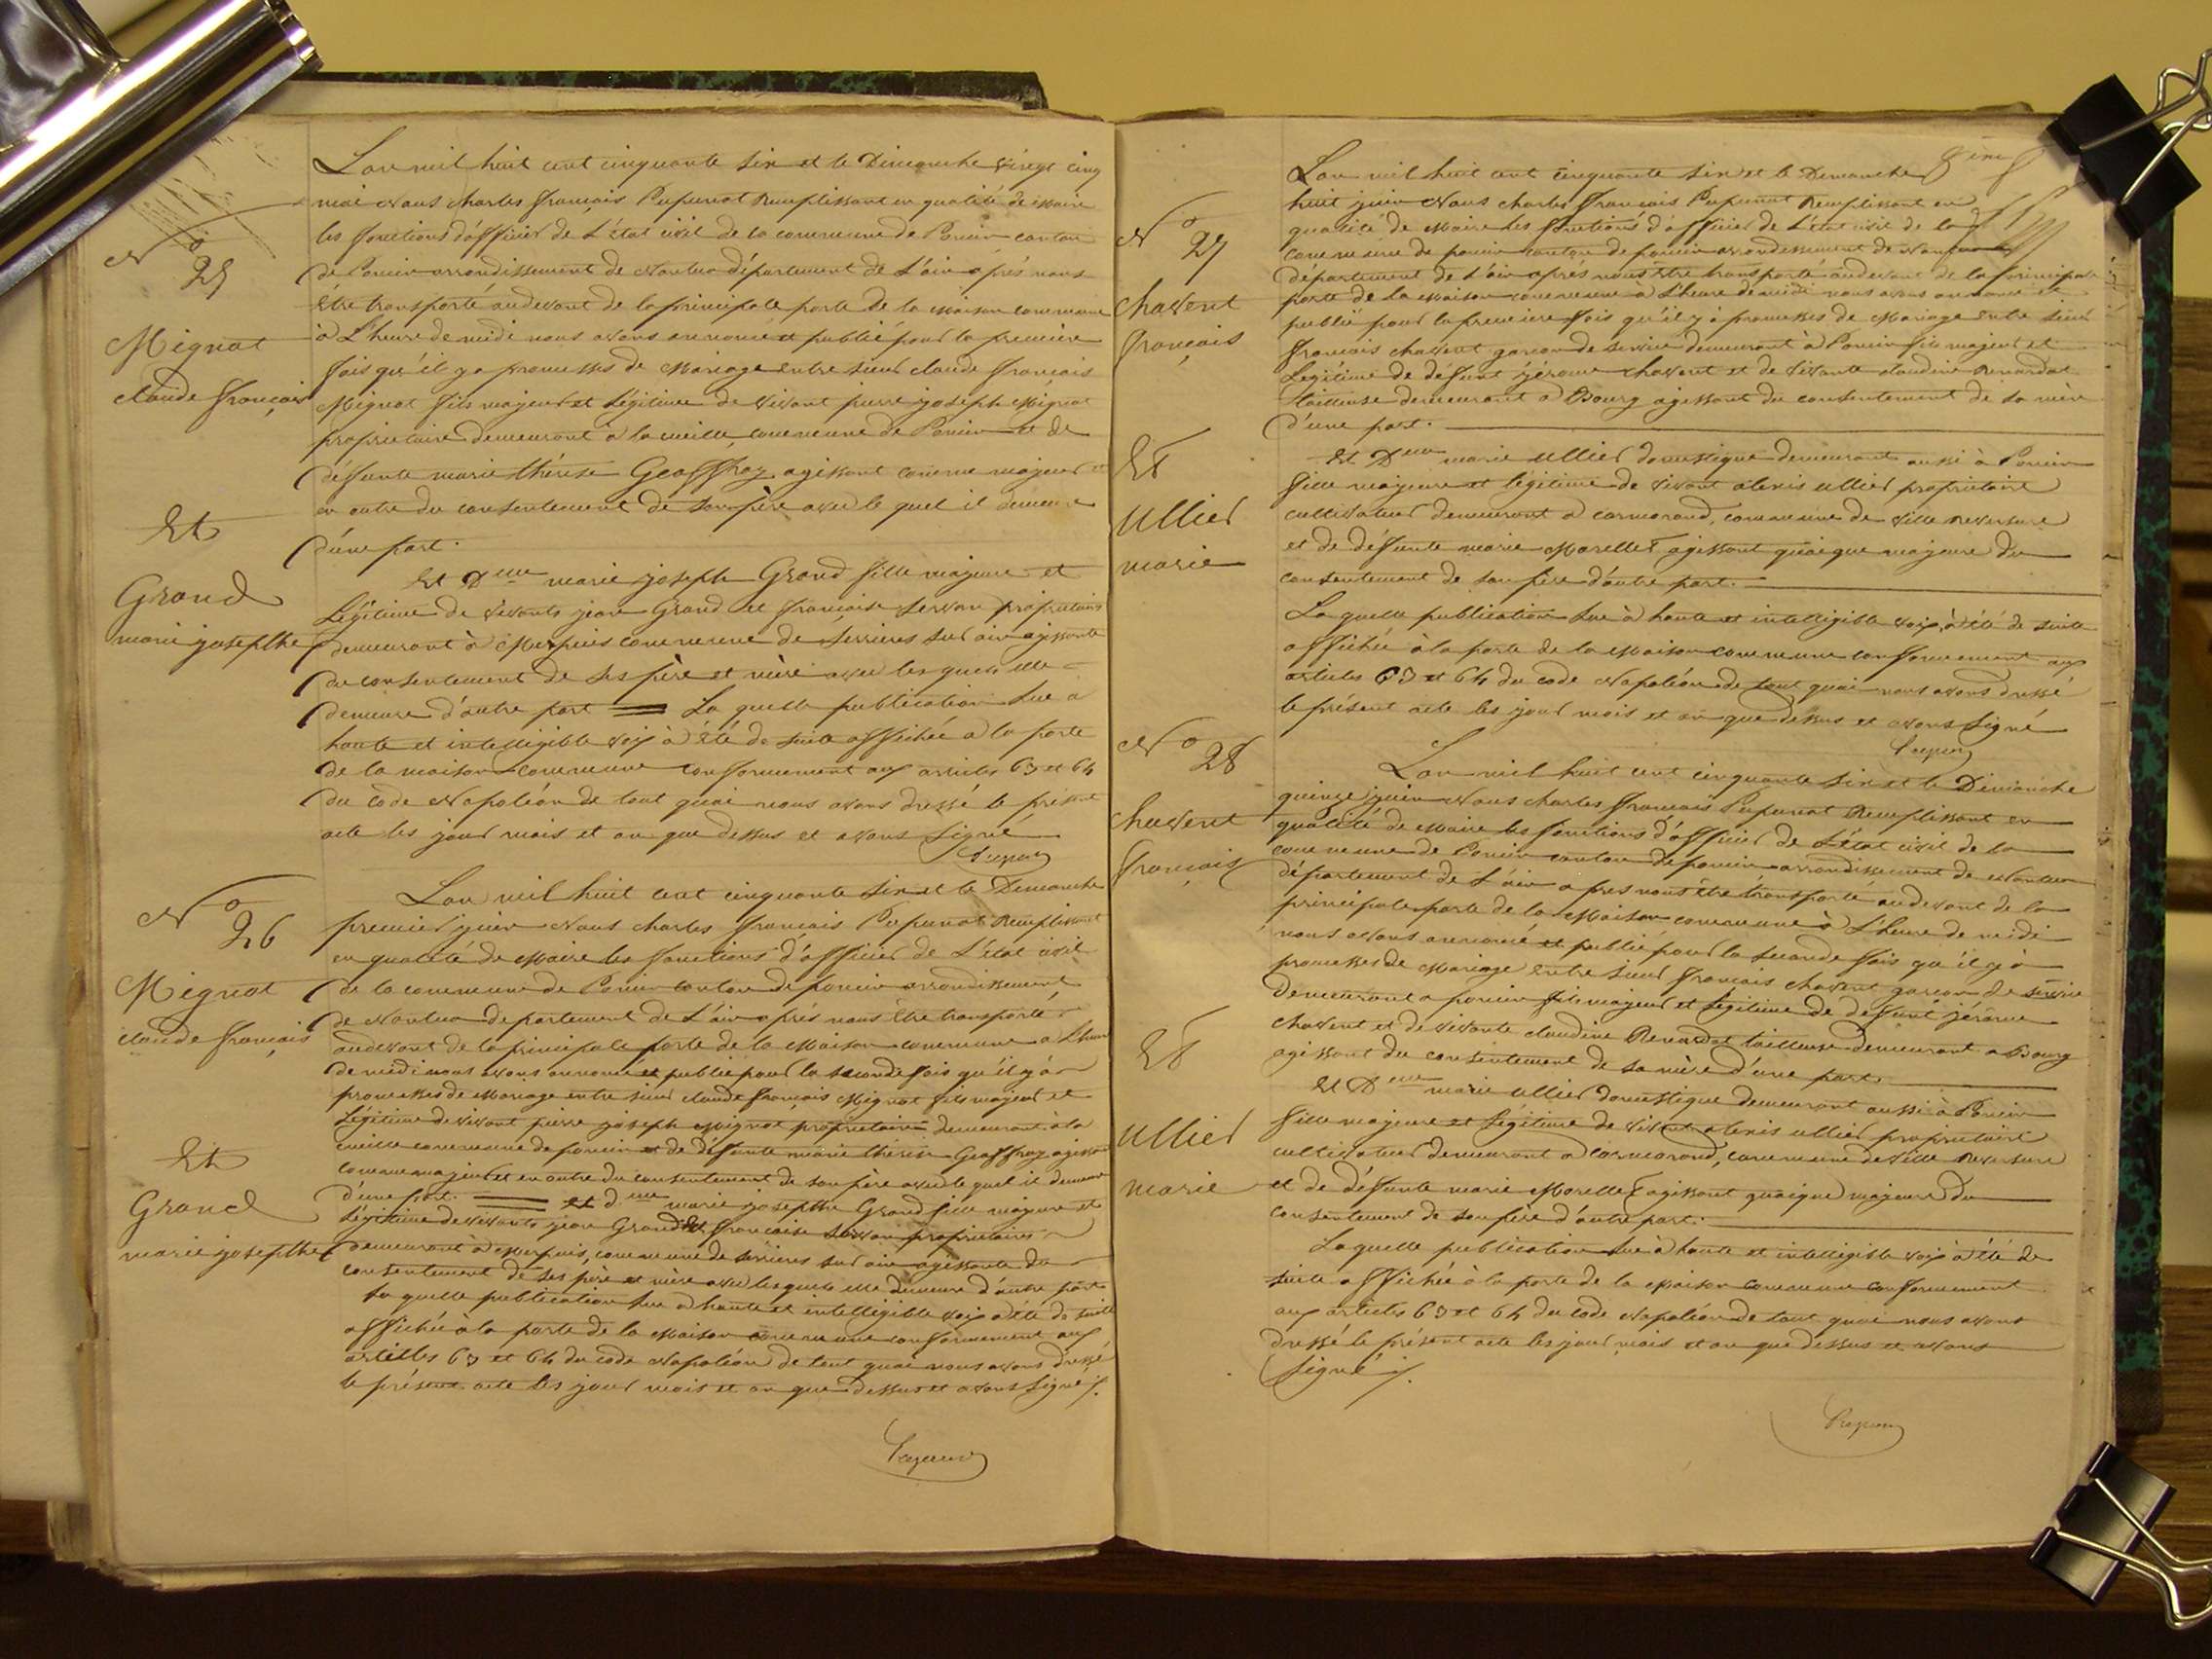 N° 25
Mignot
claude françois
Et
Grand
marie josephthe
L'an mil huit cent cinquante six et le Dimanche vingt cinq
mai Nous charles françois Pupunat Remplissant en qualité de Maire
les fonctions d'officier de L'état civil de la commune de Poncin canton
de Poncin arrondissement de Nantua département de L'ain après nous
être transporté audevant de la principale porte de la Maison commune
à L'heure de midi nous avons annoncé et publié pour la première
fois qu'il y a promesses de Mariage entre sieur claude françois
Mignot fils majeur et légitime de vivant pierre joseph Mignot
propriétaire demeurant à la cueille commune de Poncin et de
défunte marie thérèse Geoffray agissant comme majeur et
en outre du consentement de son père avec le quel il demeure
d'une part.
Et Delle marie joseph Grand fille majeure et
Légitime de vivants jean Grand et françoise Servan propriétaires
demeurant à Merpuis commune de Serrières sur ain agissante
du consentement de ses père et mère avec lesquels elle
demeure d'autre part = La quelle publication lue à
haute et intelligible voix à été de suite affichée à la porte
de la maison commune conformement aux articles 63 et 64
du code Napoléon de tout quoi nous avons dressé le présent
acte les jour mois et an que dessus et avons Signé
N° 26
Mignot
claude françois
Et
Grand
marie josephthe
L'an mil huit cent cinquante six et le Dimanche
premier juin Nous charles françois Pupunat Remplissant
en qualité de Maire les fonctions d'officier de L'état civil
de la commune de Poncin canton de poncin arrondissement
de Nantua departement de L'ain après nous être transporté
audevant de la principale porte de la Maison commune a L'heure
de midi nous avons annoncé et publié pour la seconde fois qu'il y à
promesses de Mariage entre sieur claude françois Mignot fils majeur et
Légitime de vivant pierre joseph Mignot propriétaire demeurant à la
cueille commune de poncin et de défunte marie thérèse Geoffray agissant
comme majeur et en outre du consentement de son père avec le quel il demeure
d'une part. = et delle marie josephthe Grand fille majeure et
Légitime de vivants jean Grand et françoise Servan propriétaires
demeurant à Merpuis, commune de Serrières sur ain agissante du
consentement de ses père et mère avec lesquels elle demeure d'autre part
La quelle publication lue à haute et intelligible voix à été de suite
affichée à la porte de la Maison commune conformement aux
articles 63 et 64 du code Napoléon de tout quoi nous avons dressé
le présent acte les jour mois et an que dessus et avons Signé /.
N° 27
chavent
françois
Et
ullier
marie
L'an mil huit cent cinquante six et le Dimanche
huit juin Nous charles françois Pupunat Remplissant en
qualité de Maire les fonctions d'officier de L'état civil de la
commune de poncin canton de poncin arrondissement de Nantua
département de L'ain après nous être transporté audevant de la principale
porte de la Maison commune à L'heure de midi nous avons annoncé et
publié pour la première fois qu'il y à promesses de Mariage entre sieur
françois chavent garçon de service demeurant à Poncin fils majeur et
Légitime de défunt jérome chavent et de vivante claudine Renardat
tailleuse demeurant à Bourg agissant du consentement de sa mère
d'une part.
Et Delle marie ullier domestique demeurant aussi à Poncin
fille majeure et légitime de vivant alexis ullier propriétaire
cultivateur demeurant à cormorand, commune de ville reversure
et de défunte marie Morellet agissant quoique majeure du
consentement de son père d'autre part.
La quelle publication lue à haute et intelligible voix, à été de suite
affichée à la porte de la Maison commune conformement aux
articles 63 et 64 du code Napoléon de tout quoi nous avons dressé
le présent acte les jour mois et an que dessus et avons Signé
N° 28
chavent
françois
Et
ullier
marie
L'an mil huit cent cinquante six et le Dimanche
quinze juin Nous charles françois Pupunat Remplissant en
qualité de Maire les fonctions d'officier de L'état civil de la
commune de Poncin canton de poncin arrondissement de Nantua
département de L'ain après nous être transporté audevant de la
principale porte de la Maison commune à L'heure de midi
nous avons annoncé et publié pour la seconde fois qu'il y à
promesses de Mariage entre sieur françois chavent garçon de service
Demeurant a poncin fils majeur et légitime de défunt jérôme
chavent et de vivante claudine Renardat tailleuse demeurant a Bourg
agissant du consentement de sa mère d'une part.
Et Delle marie ullier domestique demeurant aussi à Poncin
fille majeure et Légitime de vivant alexis ullier propriétaire
cultivateur demeurant a cormorand, commune de ville reversure
et de défunte marie Morellet agissant quoique majeure du
consentement de son père d'autre part.
Laquelle publication lue à haute et intelligible voix à été de
suite affichée à la porte de la Maison commune conformement
aux articles 63 et 64 du code Napoléon de tout quoi nous avons
dressé le présent acte les jour, mois et an que dessus et avons
Signé /.